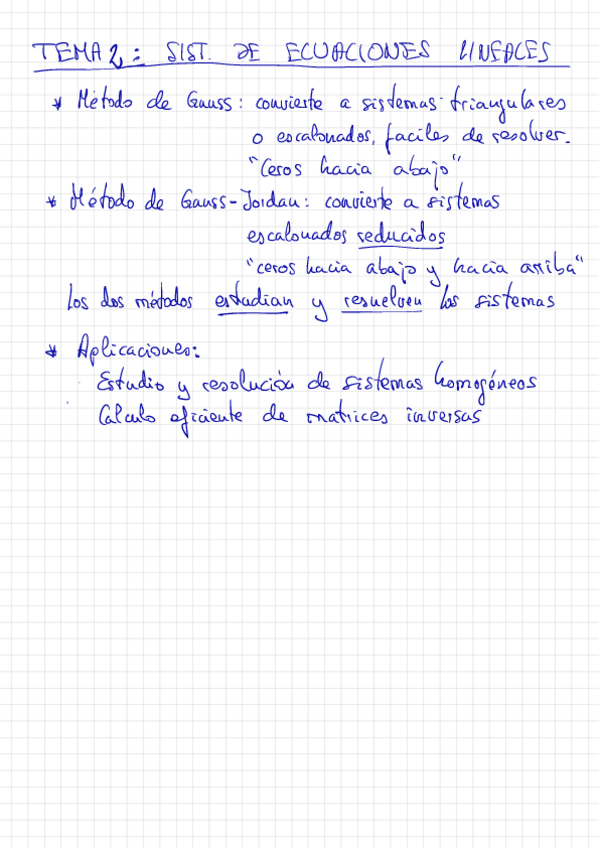 TEMA 2: SIST. DE ECUACIONES LINEALES
* Método de Gauss: convierte a sistemas triangulares
o escalonados, faciles de resolver.
"Ceros hacia abajo"
* Método de Gauss-Jordan: convierte a sistemas
escalonados reducidos
"ceros hacia abajo y hacia arriba"
Los dos métodos estudian y resuelven los sistemas
* Aplicaciones:
Estudio y resolución de sistemas homogéneos
Cálculo eficiente de matrices inversas